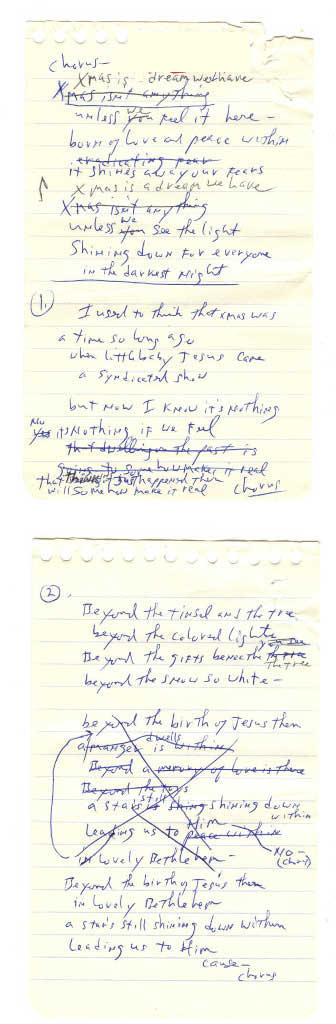 chorus-
Xmas is a dream we have
Xmas isn't anything
unless we you feel it here -
born of love and peace within
eradicating fear
it shines away our fears
Xmas is a dream we have
Xmas isn't anything
unless we you see the light
Shining down for everyone
in the darkest night
1.
I used to think that xmas was
a time so long ago
when little baby Jesus came
a syndicated show
but now I know it's nothing
No Yes it's nothing if we feel
that dwelling on the past is
going to somehow make it real
that things just happened then
will somehow make it real
chorus
2.
Beyond the tinsel and the tree
beyond the colored lights
Beyond the gifts beneath the tree
the tree
beyond the snow so white -
beyond the birth of Jesus then
a manger is within
dwells
Beyond a memory of love is there
Beyond the
a stars still shining shining down
within
Him
Leading us to peace within
NO -
(chord)
in lovely Bethlehem -
Beyond the birth of Jesus then
in lovely Bethlehem
a star's still shining down within
Leading us to Him
cause -
chorus